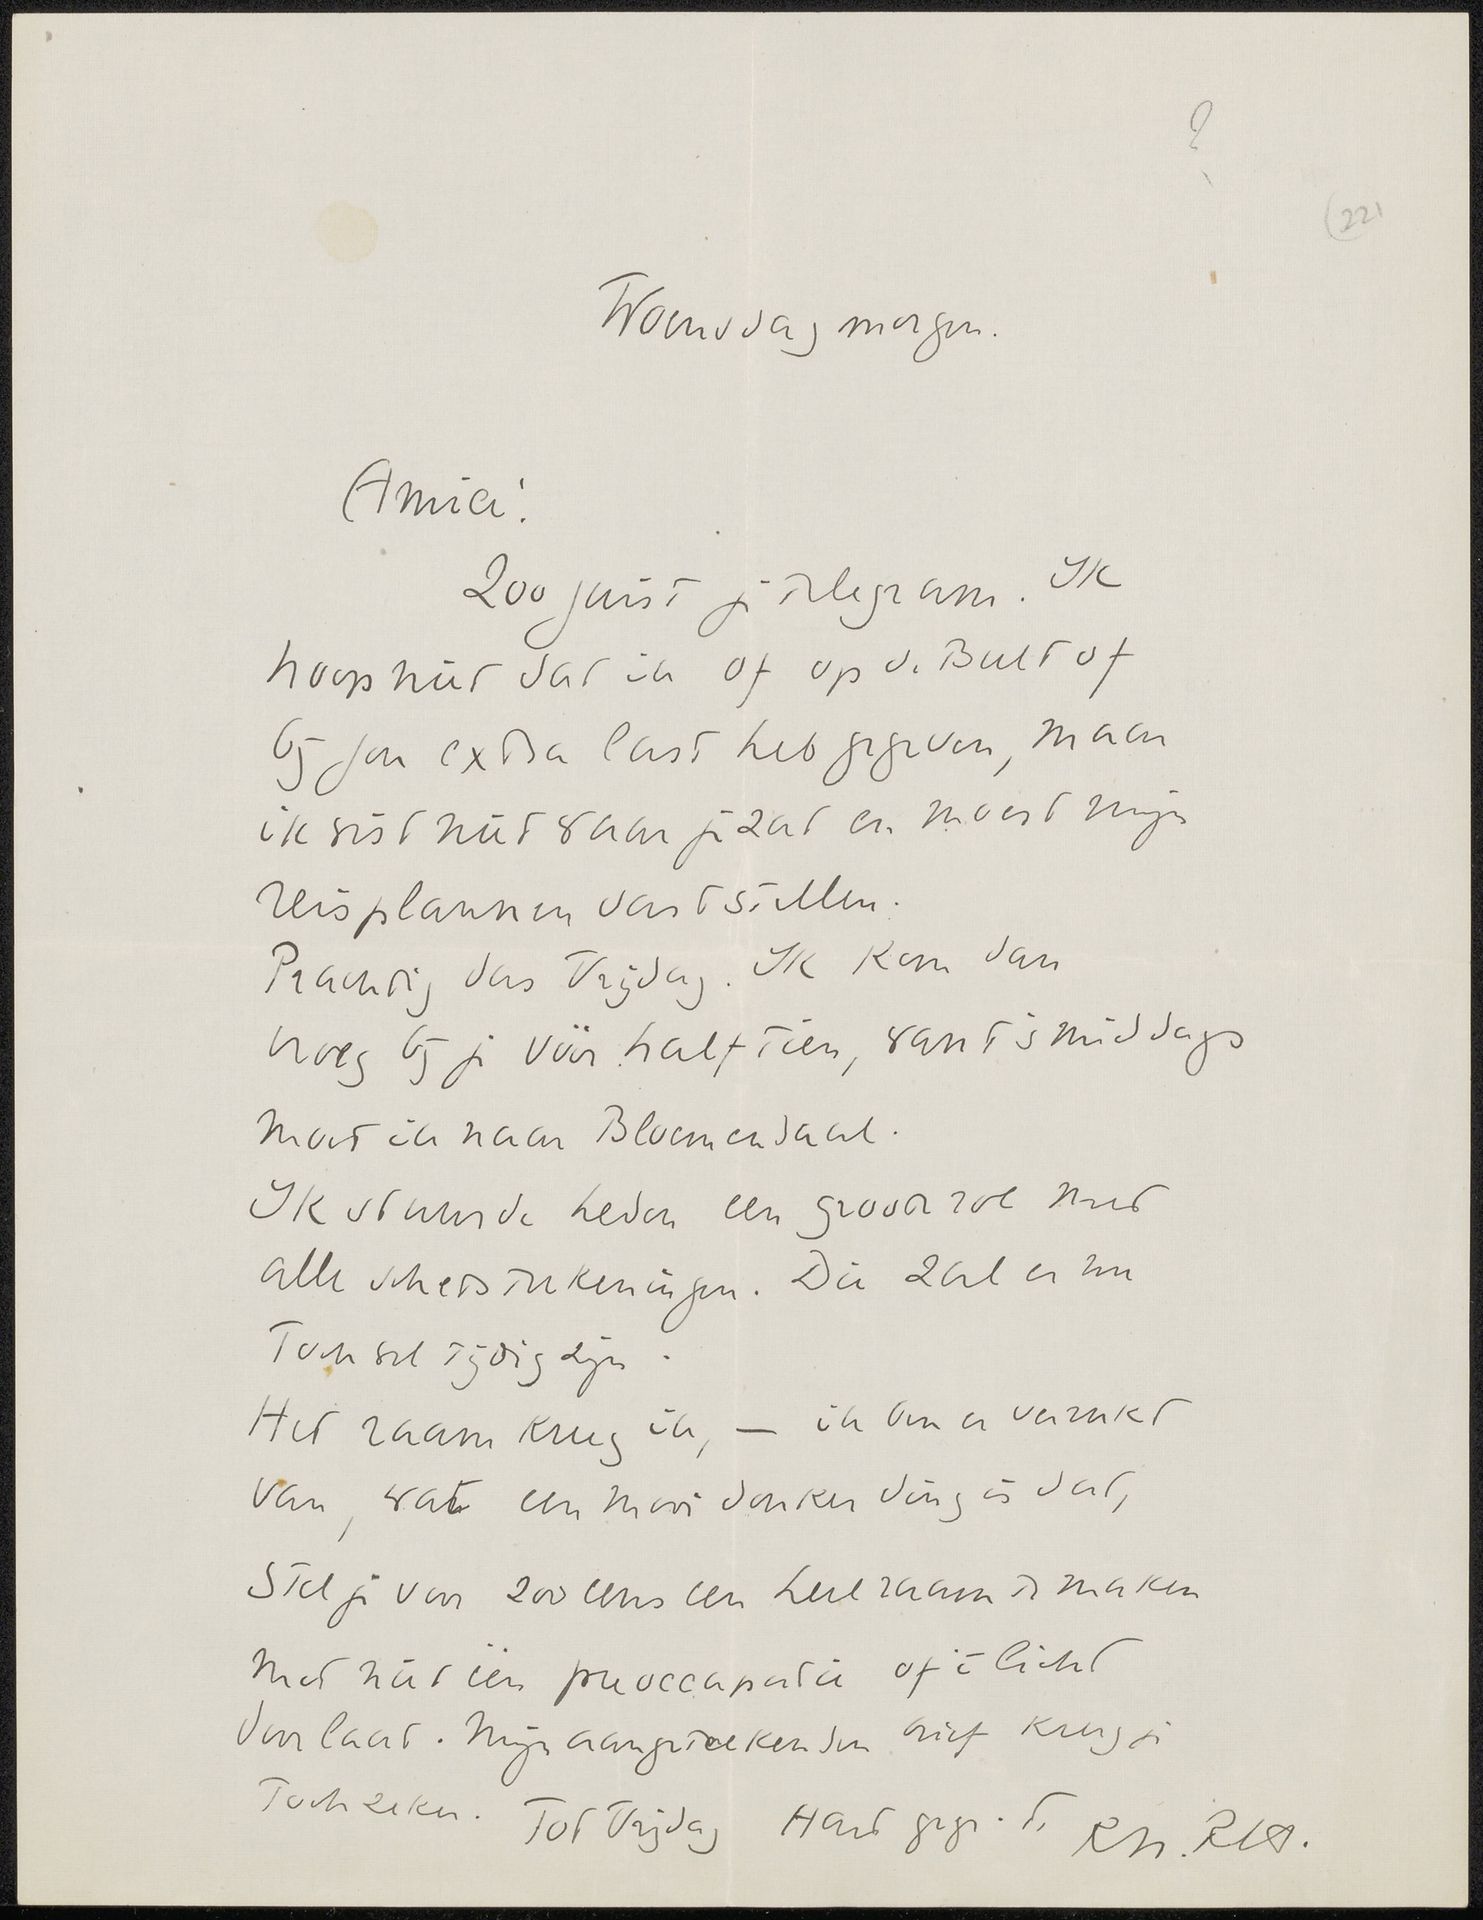 ?
(22)
Woensdag morgen.
Amici!
Zoo juist je telegram. Ik
hoop niet dat ik of op de Bult of
bij jou extra last heb gegeven, maar
ik wist niet waar je zat en moest mijn
reisplannen vaststellen.
Prachtig dus Vrijdag. Ik kom dan
vroeg bij je vóór half tien, want 's middags
moet ik naar Bloemendaal.
Ik stuurde heden een groote rol met
alle schetsteekeningen. Die zal er nu
toch wel tijdig zijn.
Het raam kreeg ik, — ik ben er verrukt
van, wat een mooi donker ding is dat,
Stel je voor zoo eens een heel raam te maken
met niet één preoccupatie of 't licht
doorlaat. Mijn aangeteekenden brief kreeg je
toch zeker. Tot Vrijdag Hart gegr. t.